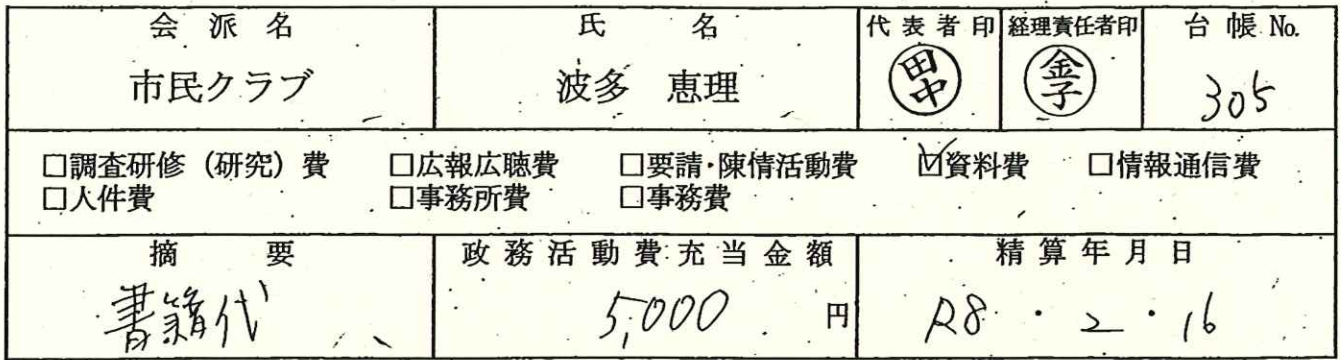 会派名 氏名 代表者印 経理責任者印 台帳No.
市民クラブ 波多 恵理 田中 金子 305
□調査研修（研究）費 □広報広聴費 □要請・陳情活動費 ☑資料費 □情報通信費
□人件費 □事務所費 □事務費
摘要 政務活動費充当金額 精算年月日
書籍代 5,000 円 R8・2・16